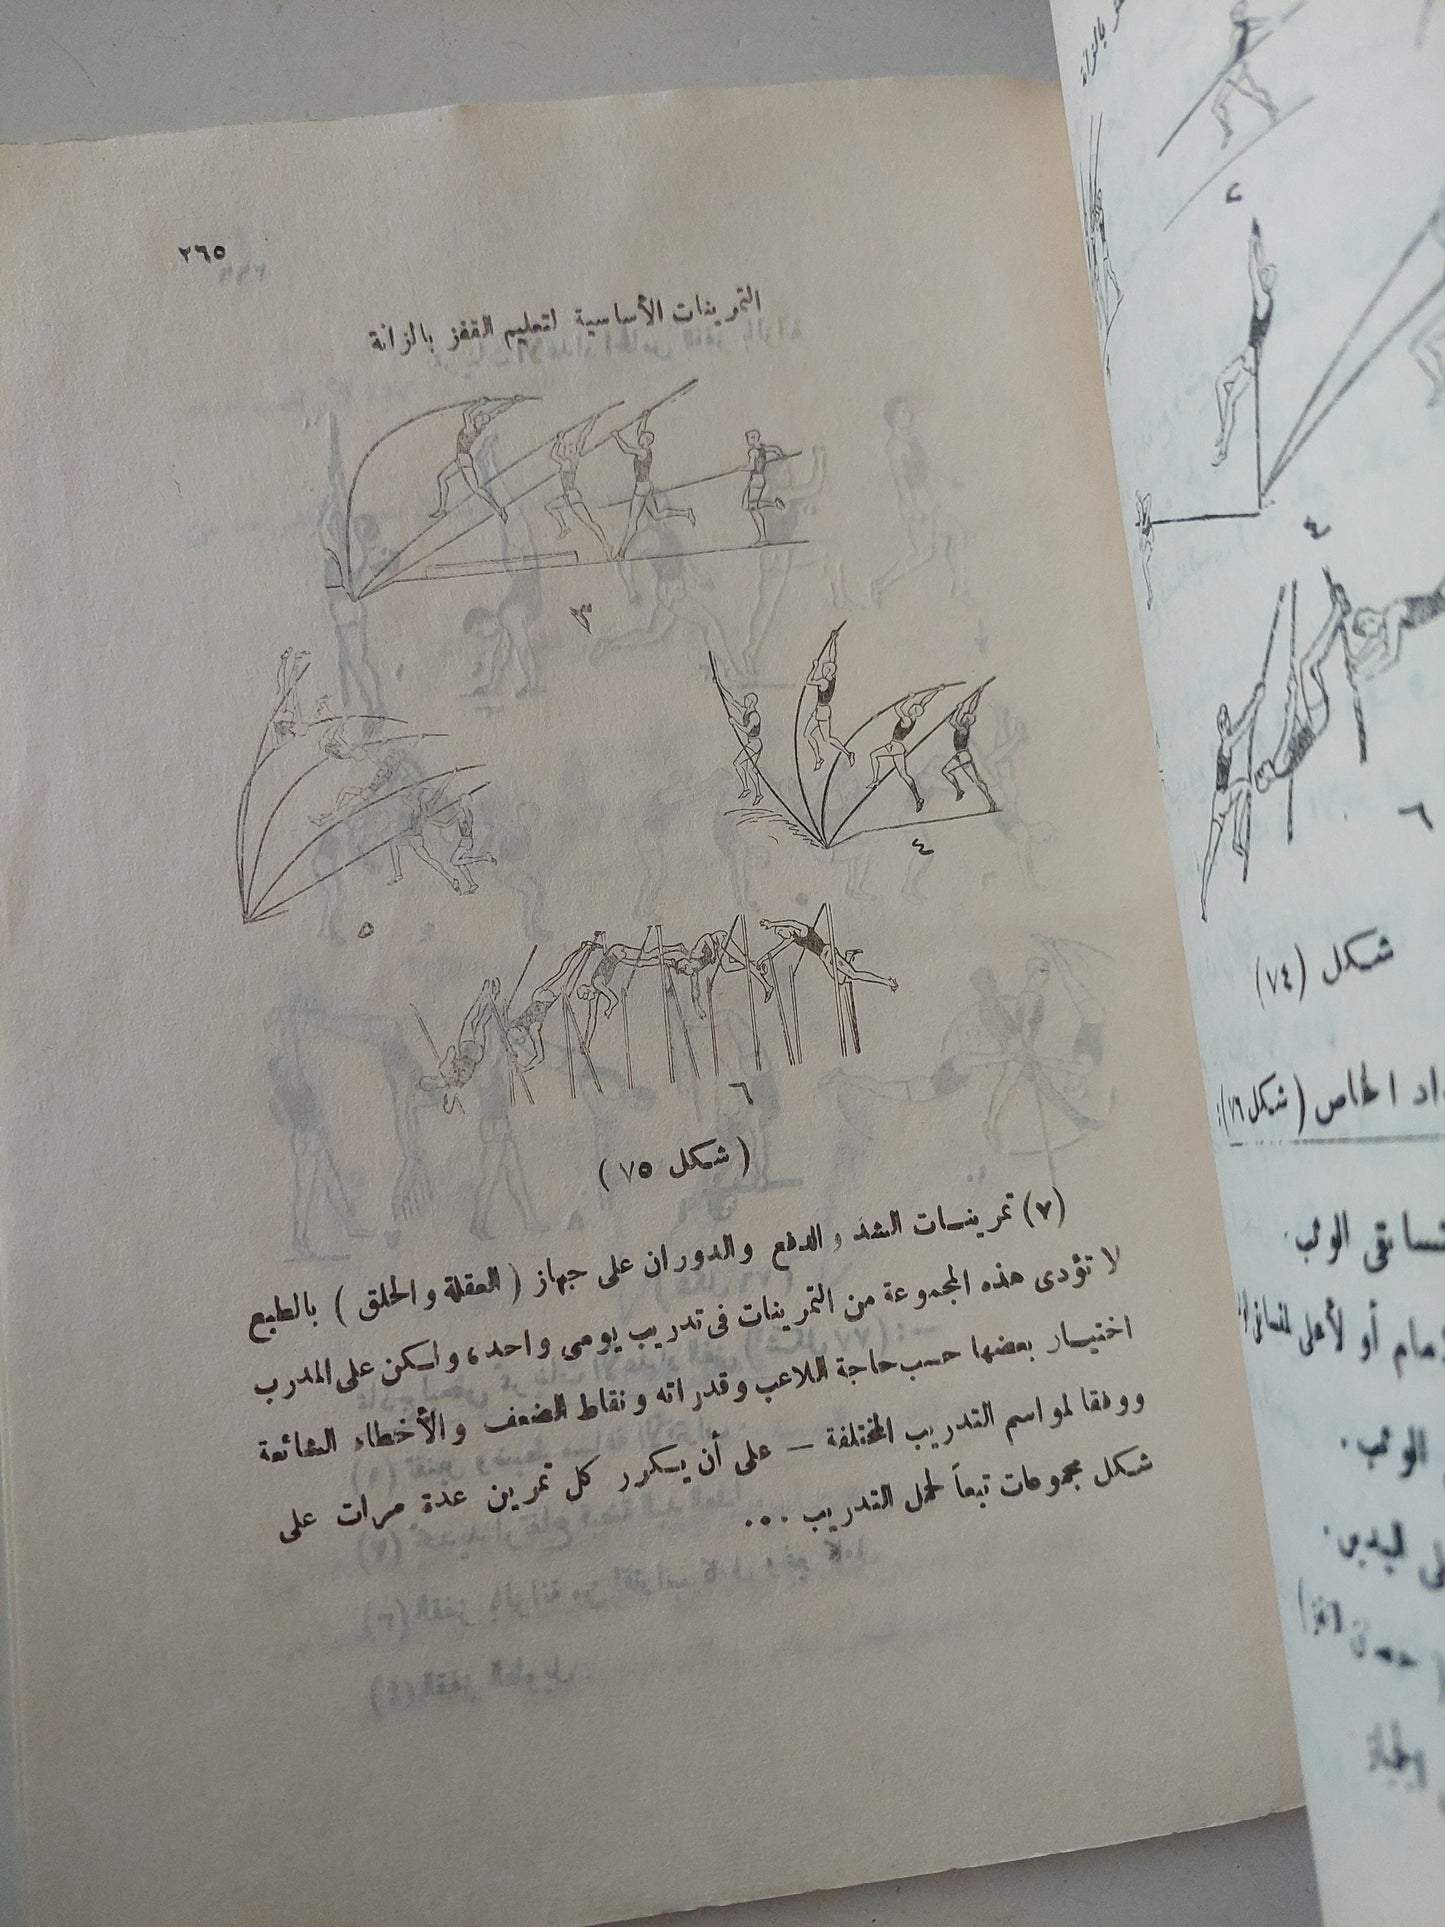 ٢٦٥
التمرينات الأساسية لتعليم القفز بالزانة
٣
٤
٥
٦
(شكل ٧٥)
(٧) تمرينات الشد والدفع والدوران على جهاز (العقلة والحلق) بالطبع
لا تؤدى هذه المجموعة من التمرينات فى تدريب يومى واحد، ولكن على المدرب
اختيار بعضها حسب حاجة اللاعب وقدراته ونقاط الضعف والأخطاء الشائعة
ووفقا لمواسم التدريب المختلفة — على أن يكرر كل تمرين عدة مرات على
شكل مجموعات تبعاً لحمل التدريب ...
بالزانة
٢
٤
٦
شكل (٧٤)
الخاص (شكل ٧٦):
الوثب.
أو لأعلى
الوثب.